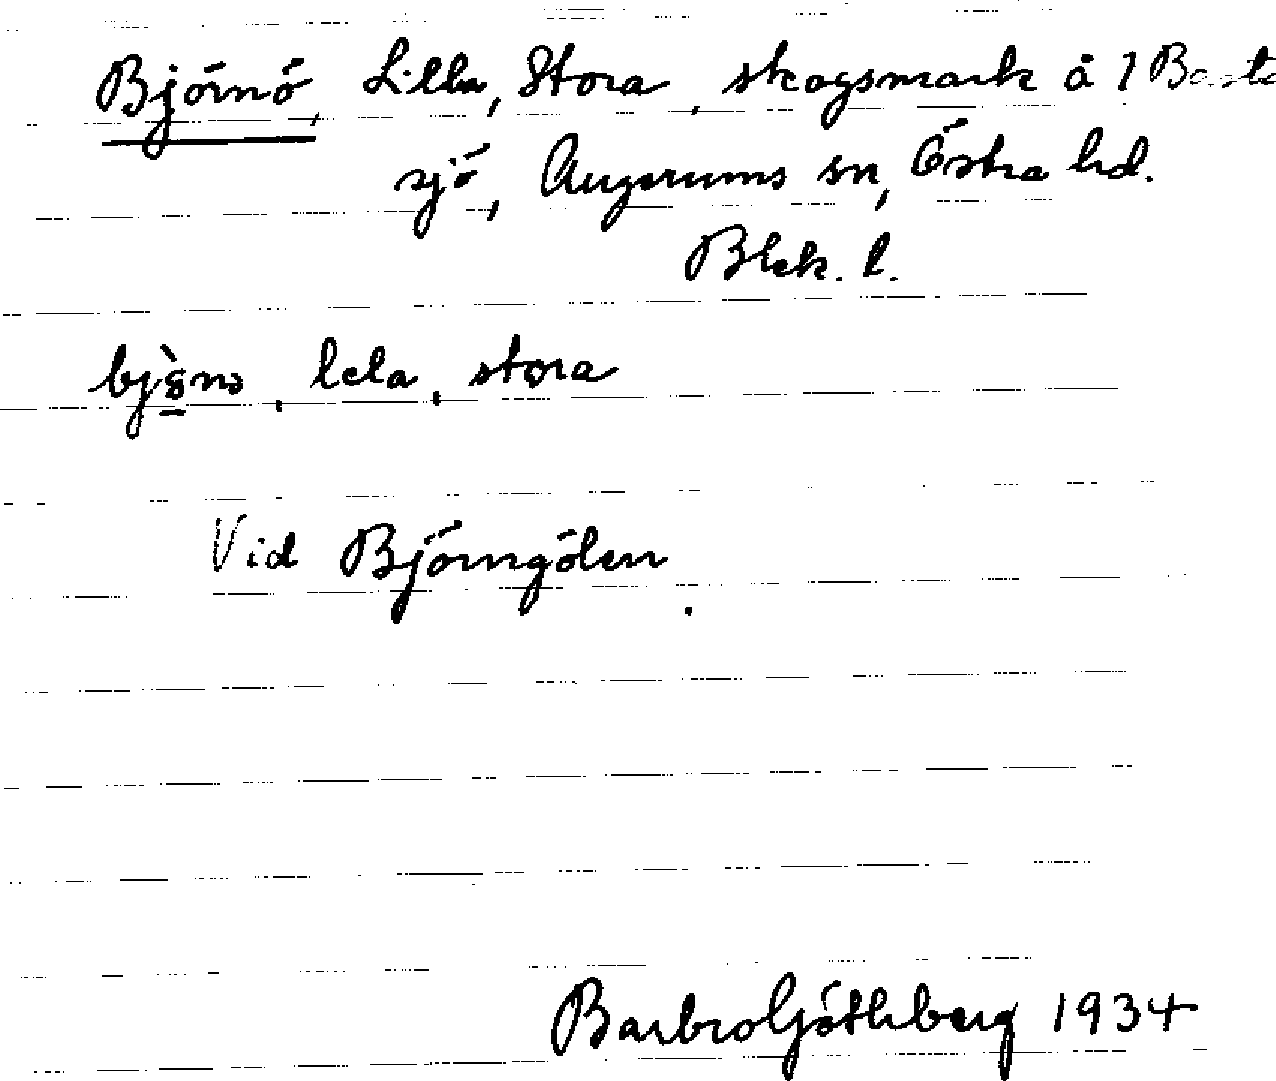 Björnö, Lilla, Stora, skogsmark å 1 Basta
sjö, Augerums sn, Östra hd.
Blek. l.
lela, stora
Vid Björngölen.
Barbro Göthberg 1934